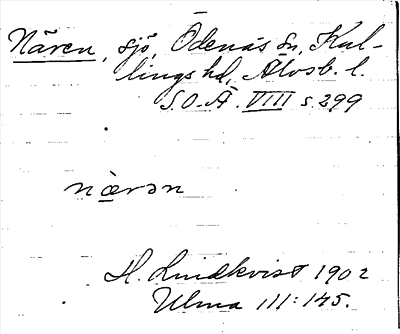 Nären, sjö, Ödenäs sn, Kul-
lings hd, Älvsb. l.
S.O.Ä. VIII s. 299
nærən
H. Lindkvist 1902
Ulma 111:145.